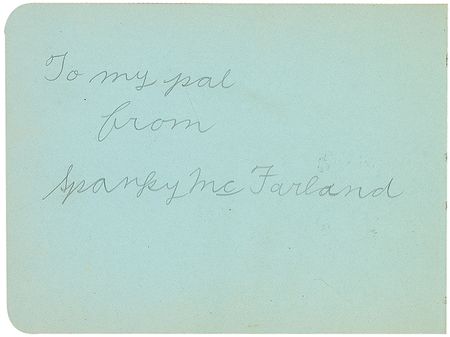 To my pal
from
Spanky McFarland